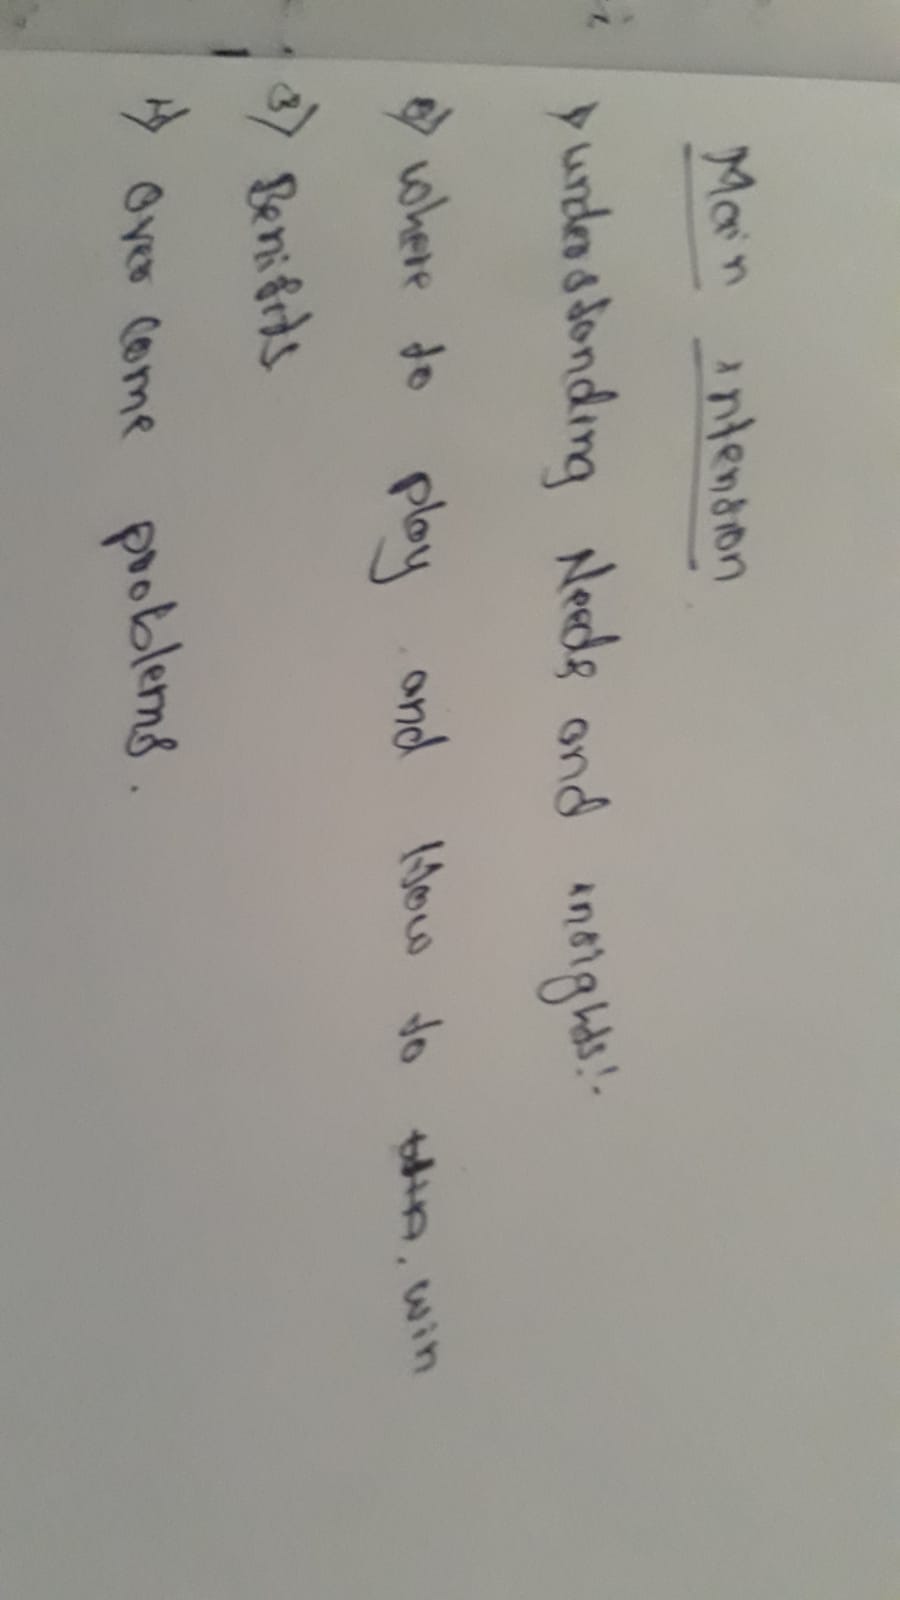 Main intension
1) understanding Needs and insights!.
2) where to play and How to win
3) Benifits
4) over come problems.